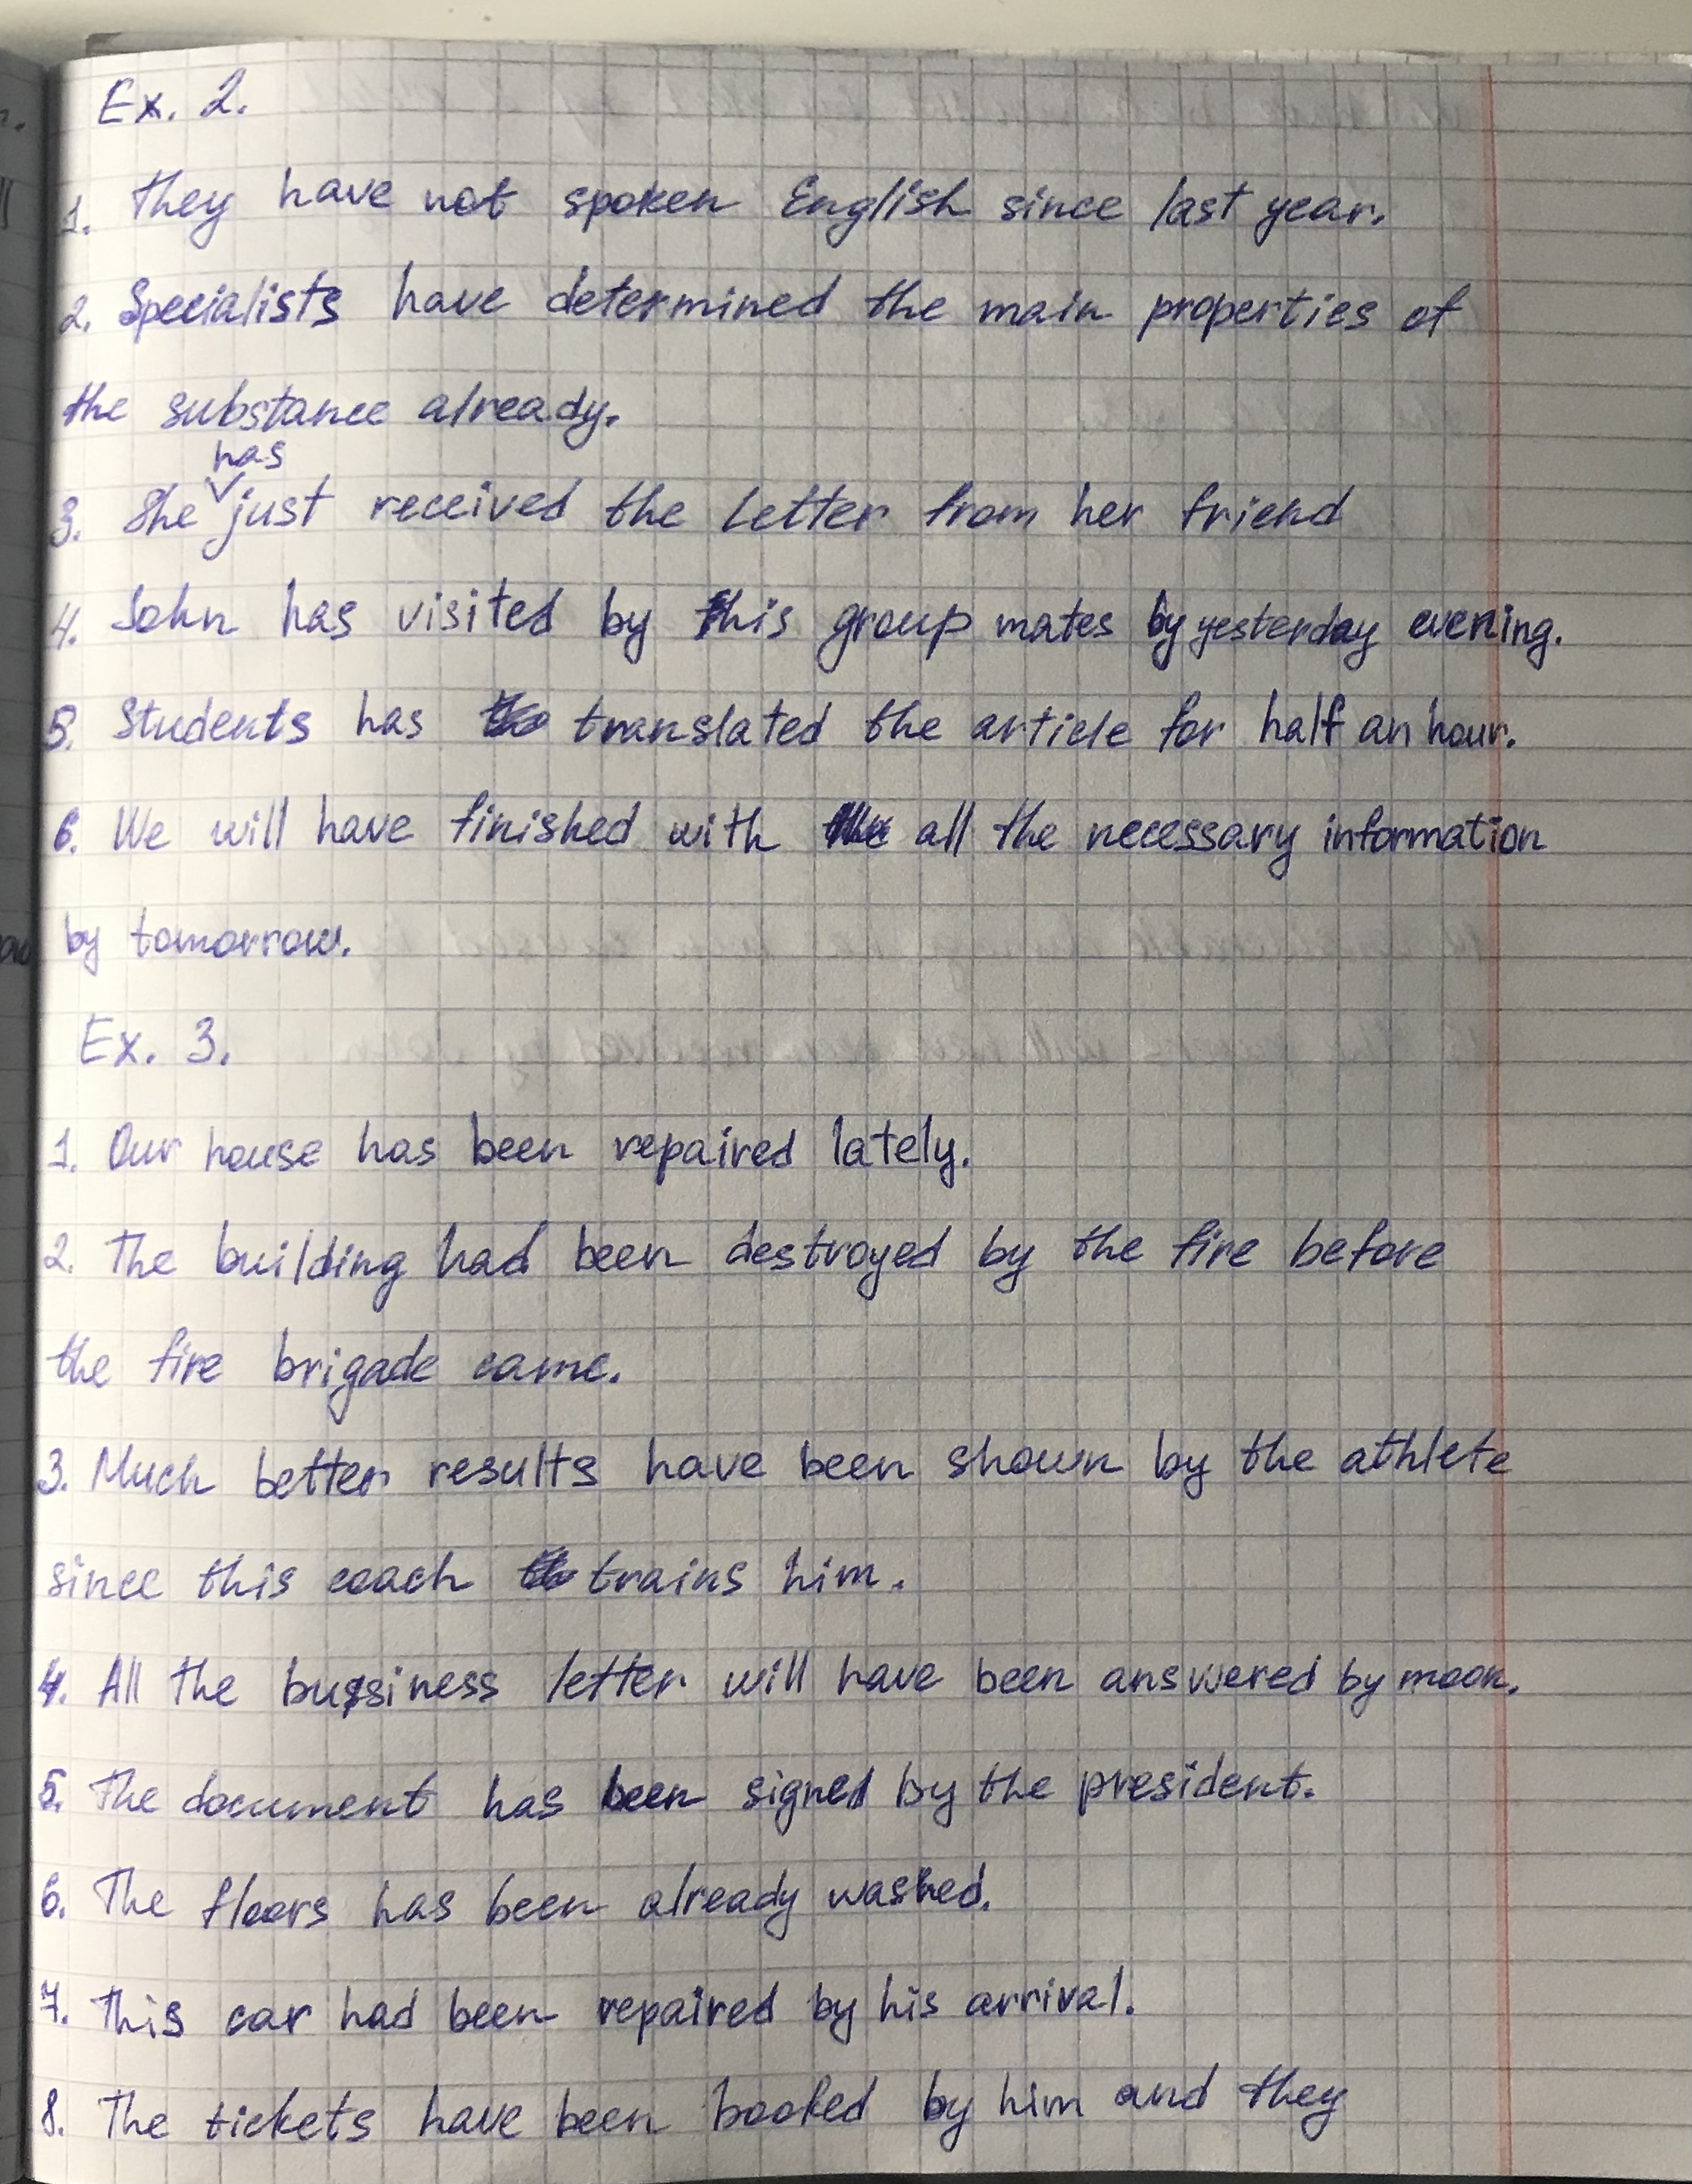 Ex. 2.
1. They have not spoken English since last year.
2. Specialists have determined the main properties of
the substance already.
has
3. She just received the letter from her friend
4. John has visited by this group mates by yesterday evening.
5. Students has translated the article for half an hour.
6. We will have finished with all the necessary information
by tomorrow.
Ex. 3.
1. Our house has been repaired lately.
2. The building had been destroyed by the fire before
the fire brigade came.
3. Much better results have been shown by the athlete
since this coach trains him.
4. All the business letter will have been answered by moon.
5. The document has been signed by the president.
6. The floors has been already washed.
7. This car had been repaired by his arrival.
8. The tickets have been booked by him and they